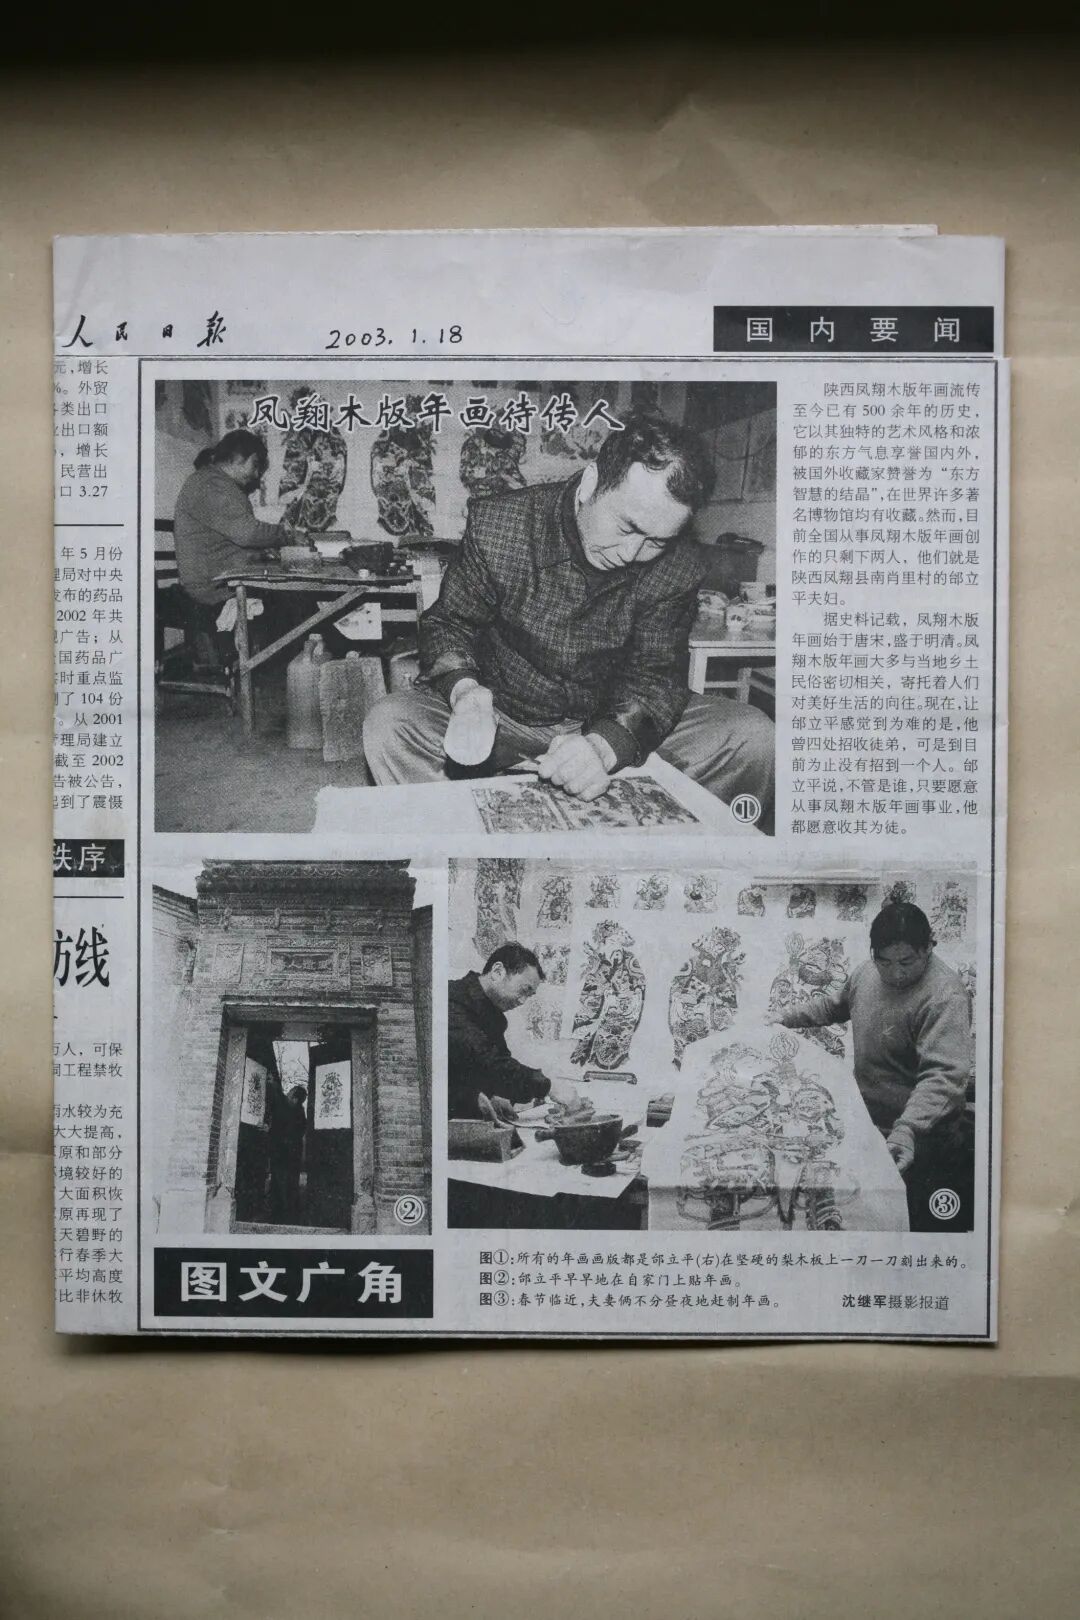 人民日报
2003.1.18
国内要闻
元,增长
%。外贸
各类出口
业出口额
,增长
民营出
口 3.27
年 5 月份
理局对中央
发布的药品
2002 年共
规广告；从
全国药品广
实时重点监
到了 104 份
。从 2001
管理局建立
截至 2002
告被公告，
起到了震慑
秩序
防线
万人，可保
同工程禁牧
雨水较为充
大大提高，
草原和部分
环境较好的
大面积恢
草原再现了
天碧野的
实行春季大
平均高度
比非休牧
凤翔木版年画待传人
①
陕西凤翔木版年画流传
至今已有 500 余年的历史，
它以其独特的艺术风格和浓
郁的东方气息享誉国内外，
被国外收藏家赞誉为“东方
智慧的结晶”，在世界许多著
名博物馆均有收藏。然而，目
前全国从事凤翔木版年画创
作的只剩下两人，他们就是
陕西凤翔县南肖里村的邰立
平夫妇。
据史料记载，凤翔木版
年画始于唐宋，盛于明清。凤
翔木版年画大多与当地乡土
民俗密切相关，寄托着人们
对美好生活的向往。现在，让
邰立平感觉到为难的是，他
曾四处招收徒弟，可是到目
前为止没有招到一个人。邰
立平说，不管是谁，只要愿意
从事凤翔木版年画事业，他
都愿意收其为徒。
②
③
图文广角
图①：所有的年画画版都是邰立平(右)在坚硬的梨木板上一刀一刀刻出来的。
图②：邰立平早早地在自家门上贴年画。
图③：春节临近，夫妻俩不分昼夜地赶制年画。
沈继军摄影报道